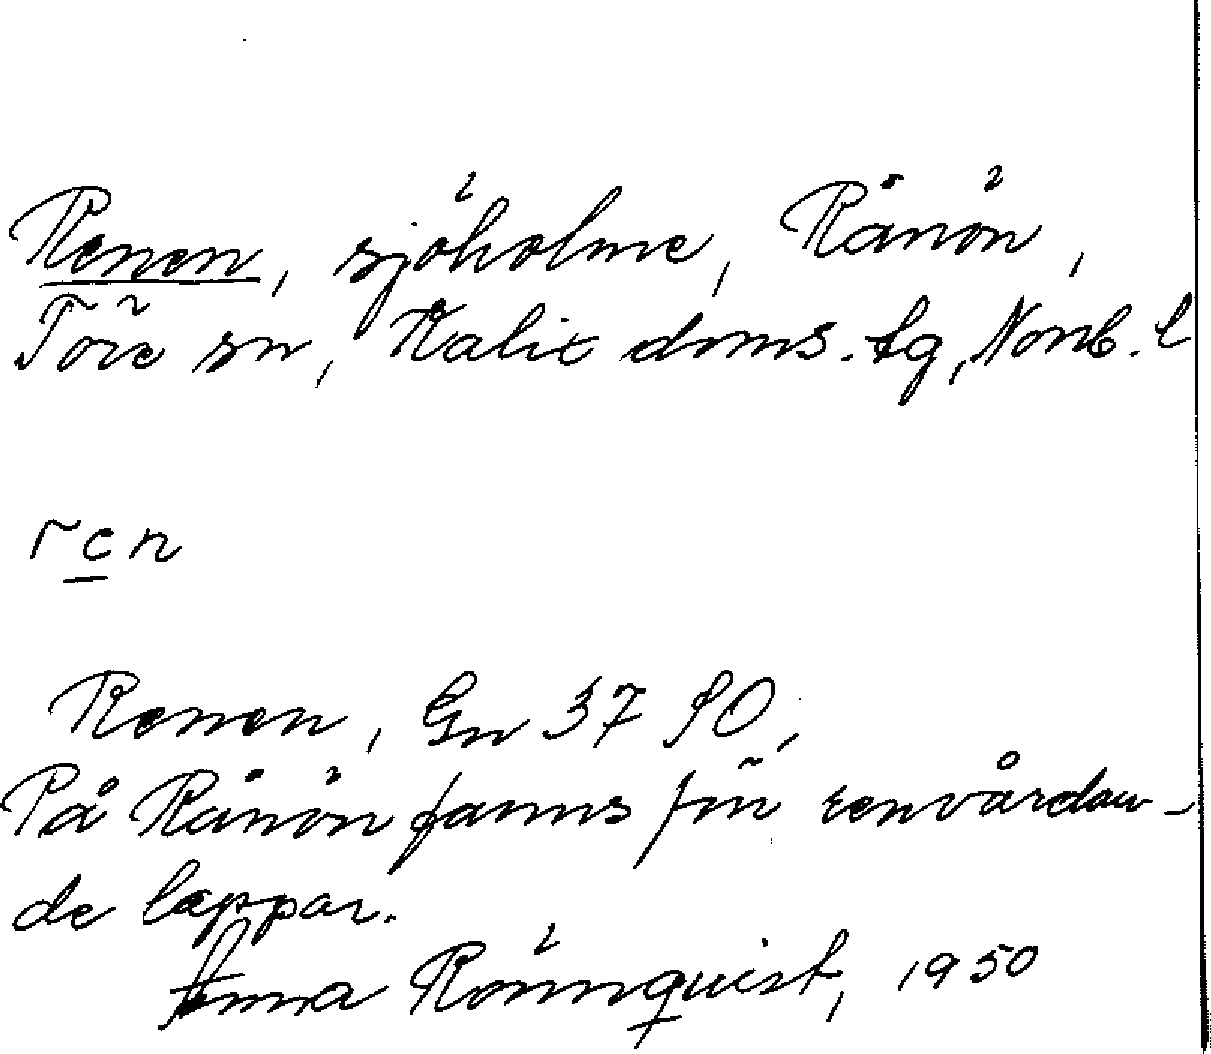 Renen, sjöholme, Rånön,
Töre sn, Kalix doms. tg, Norrb. l
ren
Renen, Gn 37 SO,
På Rånön fanns förr renvårdan-
de lappar.
Anna Rönnquist, 1950